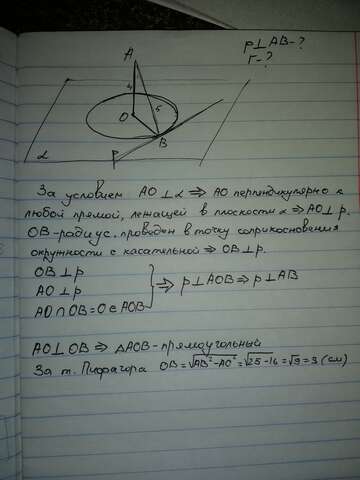 p⊥AB-?
r-?
A
4
5
O
B
p
α
За условием AO⊥α ⇒ AO перпендикулярно к
любой прямой, лежащей в плоскости α ⇒ AO⊥p.
OB-радиус, проведен в точку соприкосновения
окружности с касательной ⇒ OB⊥p.
OB⊥p
AO⊥p
AO∩OB=O∈AOB
⇒ p⊥AOB ⇒ p⊥AB
AO⊥OB ⇒ ΔAOB-прямоугольный
За т. Пифагора OB=√AB²-AO²=√25-16=√9=3 (см)